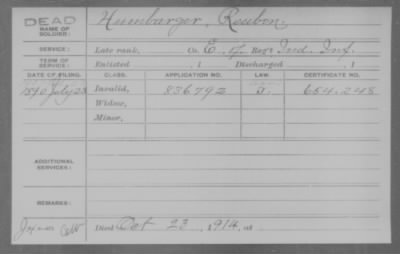 DEAD
NAME OF SOLDIER: Humbarger, Reuben,
SERVICE: Late rank, Co. E, 17 Reg't Ind. Inf.
TERM OF SERVICE: Enlisted , 1 Discharged , 1
DATE OF FILING. CLASS. APPLICATION NO. LAW. CERTIFICATE NO.
1890 July 28 Invalid, 836.792 654.248
Widow,
Minor,
ADDITIONAL SERVICES:
REMARKS:
Died Oct 23, 1914, at